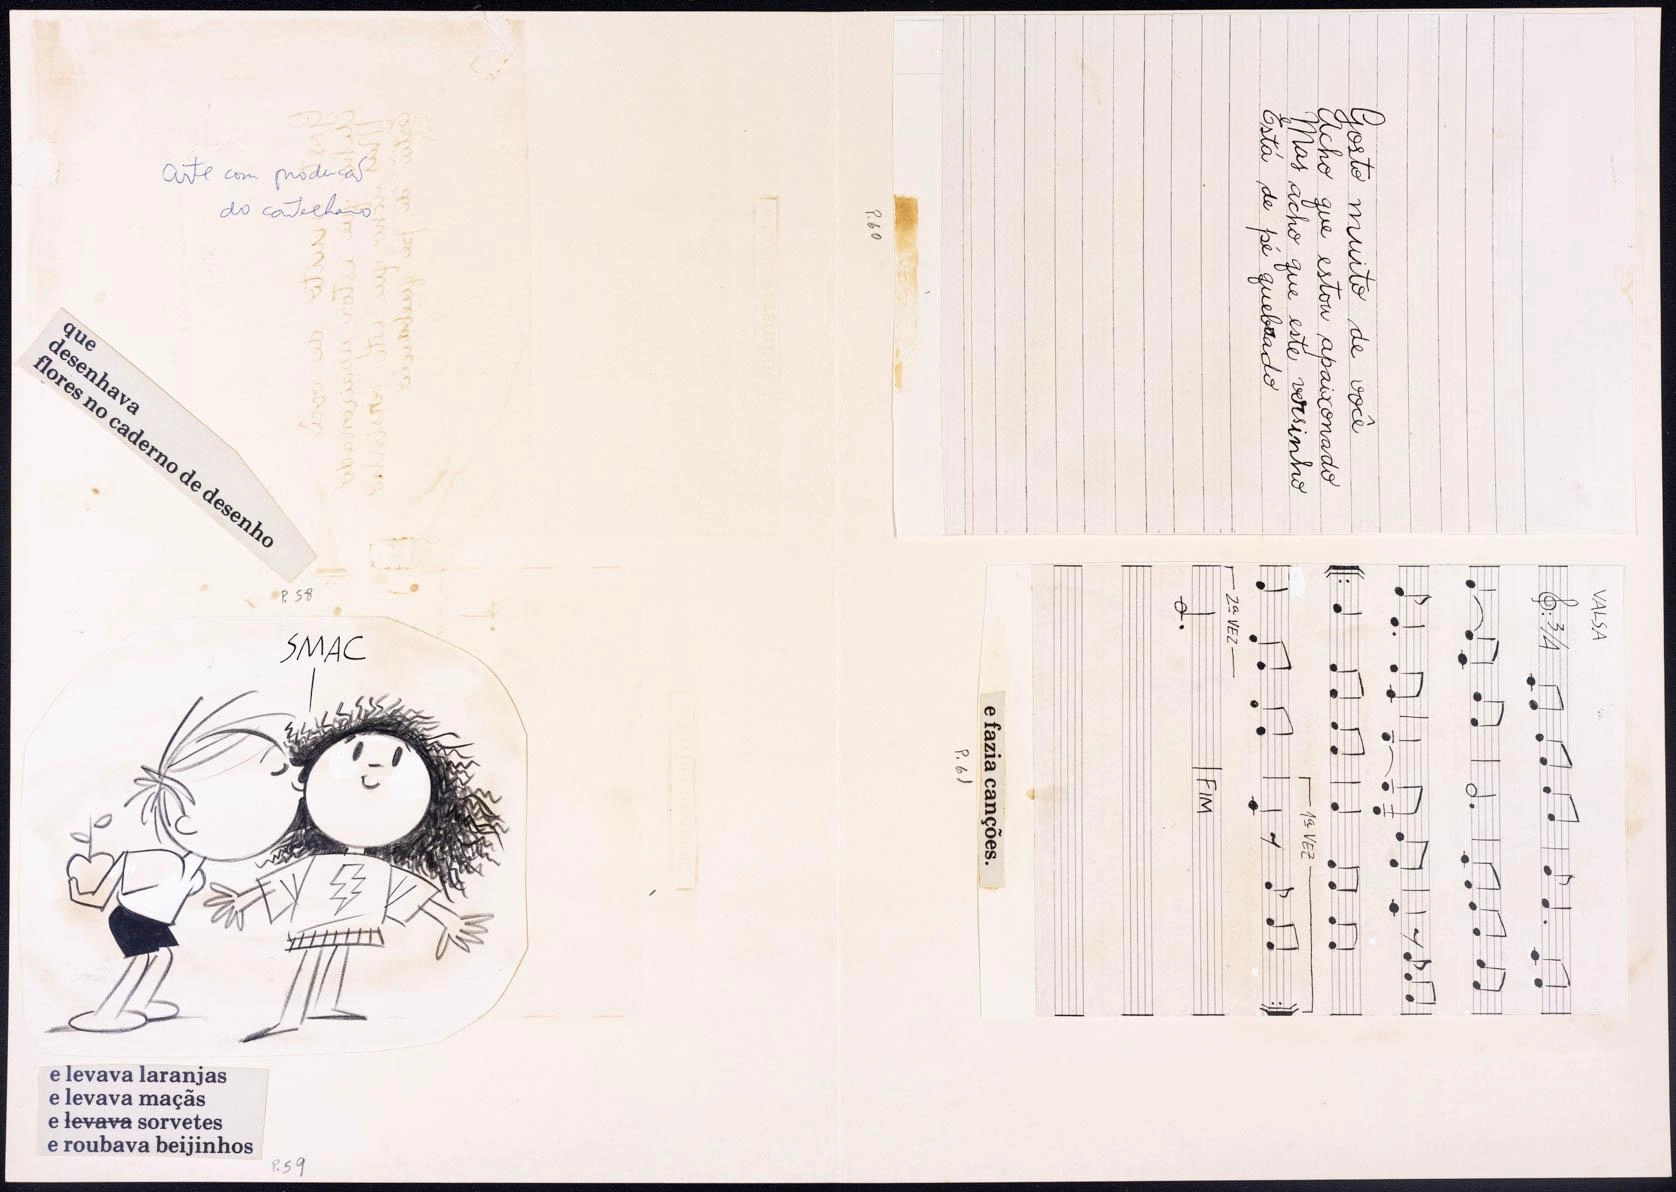 arte com produção
do castelhano
que
desenhava
flores no caderno de desenho
P. 58
SMAC
e levava laranjas
e levava maçãs
e levava sorvetes
e roubava beijinhos
P. 59
Gosto muito de você
Acho que estou apaixonado
Mas acho que este versinho
Está de pé quebrado
P. 60
VALSA
3/4
1ª VEZ
2ª VEZ
FIM
e fazia canções.
P. 61